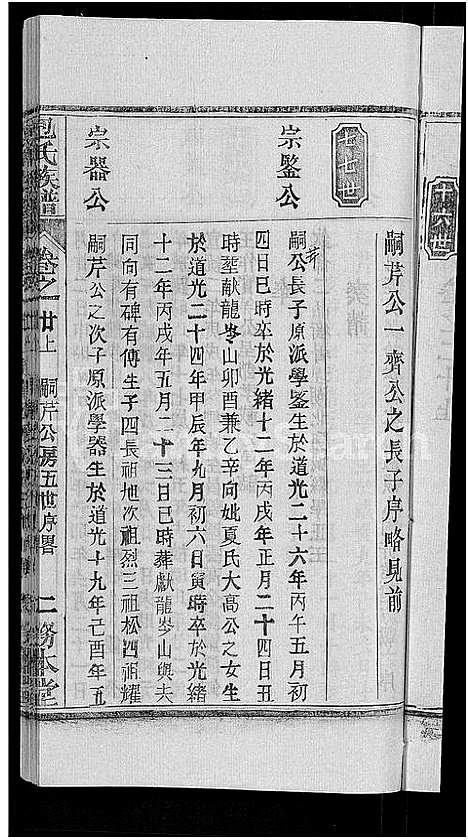 十六世
嗣芹公一齊公之長子序略見前
十七世
宗鑒公
嗣芹公長子原派學鑒生於道光二十六年丙午五月初
四日巳時卒於光緒十二年丙戌年正月二十四日丑
時塟獻龍岺山卯酉兼乙辛向妣夏氏大高公之女生
於道光二十四年甲辰年九月初六日寅時卒於光緒
十二年丙戌年五月二十三日巳時葬獻龍岑山與夫
同向有碑有傳生子四長祖旭次祖烈三祖松四祖耀
宗器公
嗣芹公之次子原派學器生於道光十九年己酉年五
包氏族譜
卷之廿上
嗣芹公房五世序畧
二
務本堂